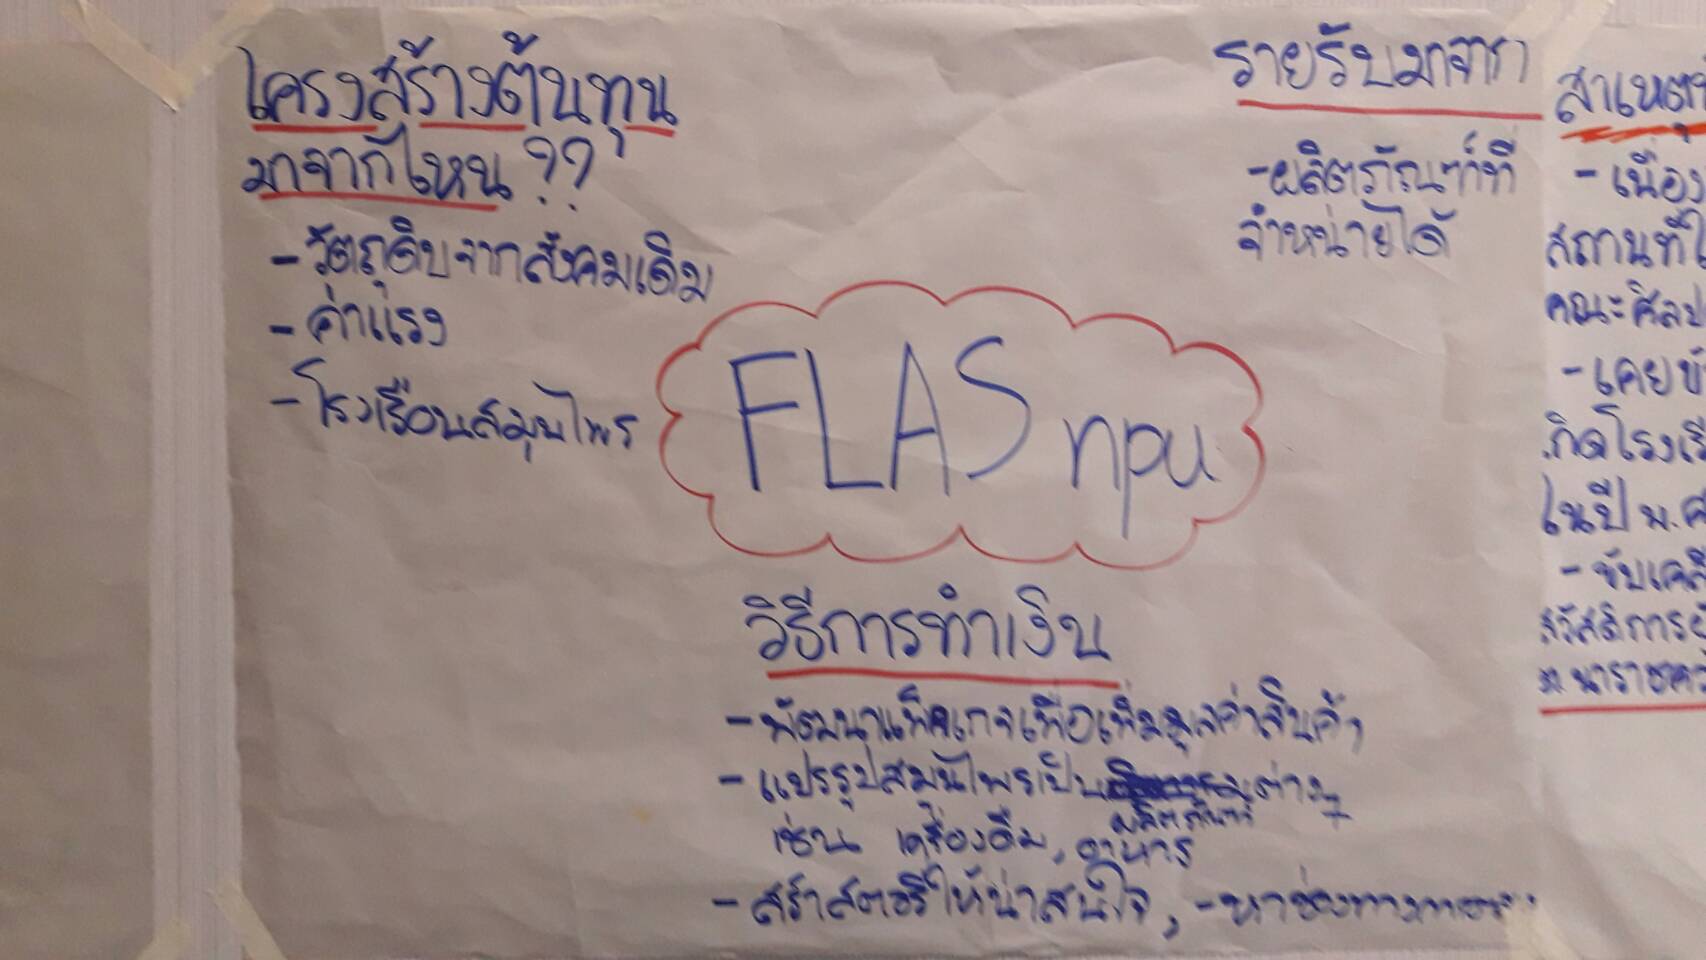 โครงสร้างต้นทุน
มาจากไหน ??
- วัตถุดิบจากสังคมเดิม
- ค่าแรง
- โรงเรือนสมุนไพร
รายรับมาจาก
- ผลิตภัณฑ์ที่
จำหน่ายได้
FLAS npu
วิธีการทำเงิน
- พัฒนาแพ็คเกจเพื่อเพิ่มมูลค่าสินค้า
- แปรรูปสมุนไพรเป็น ต่างๆ
ผลิตภัณฑ์
เช่น เครื่องดื่ม, อาหาร
- สร้าสตอรี่ให้น่าสนใจ, - หาช่องทางการ
สาเหตุ
- เนื่อง
สถานที่ใ
คณะศิลป
- เคย
กิดโรงเรี
ในปี พ.ศ
- ขับเคลื่
สวัสดิการ